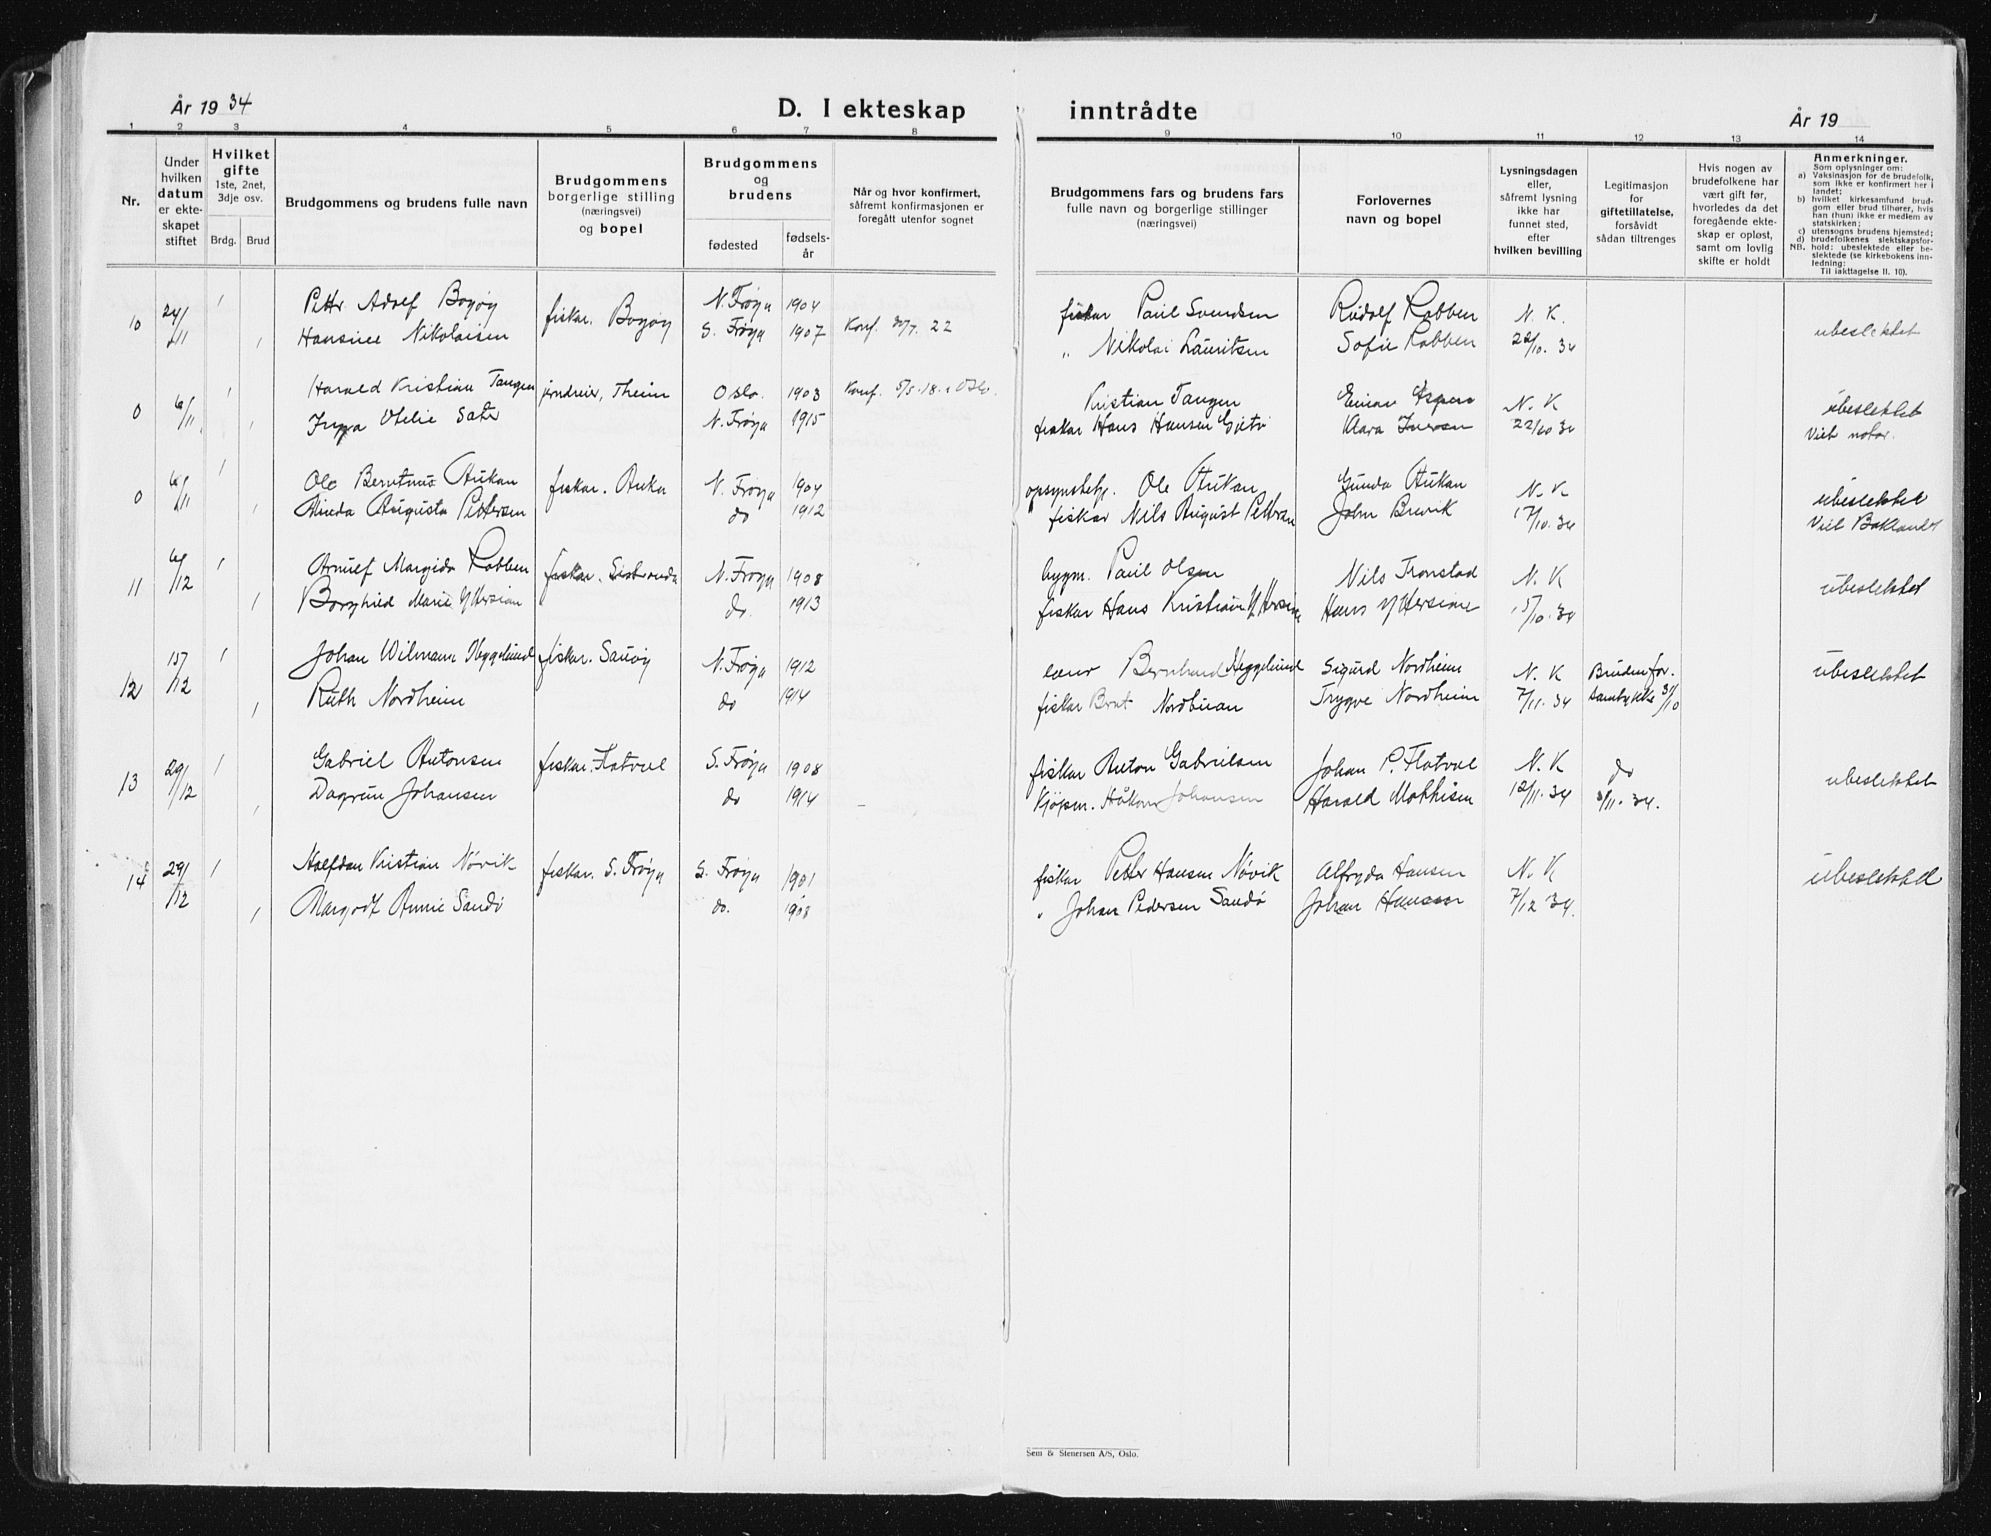 År 1934
D. I ekteskap inntrådte
År 19
1 2 3 4 5 6 7 8 9 10 11 12 13 14
Nr.
Under hvilken datum er ekteskapet stiftet
Hvilket gifte 1ste, 2net, 3dje osv.
Brdg. Brud
Brudgommens og brudens fulle navn
Brudgommens borgerlige stilling (næringsvei) og bopel
Brudgommens og brudens
fødested
fødselsår
Når og hvor konfirmert, såfremt konfirmasjonen er foregått utenfor sognet
Brudgommens fars og brudens fars fulle navn og borgerlige stillinger (næringsvei)
Forlovernes navn og bopel
Lysningsdagen eller, såfremt lysning ikke har funnet sted, efter hvilken bevilling
Legitimasjon for giftetillatelse, forsåvidt sådan tiltrenges
Hvis nogen av brudefolkene har vært gift før, hvorledes da det foregående ekteskap er opløst, samt om lovlig skifte er holdt
Anmerkninger.
Som oplysninger om:
a) Vaksinasjon for de brudefolk, som ikke er konfirmert her i landet;
b) hvilket kirkesamfund brudgom eller brud tilhører, hvis han (hun) ikke er medlem av statskirken;
c) utensogns brudens hjemsted;
d) brudefolkenes slektskapsforhold: ubeslektede eller beslektede (se kirkebokens innledning:
NB.
Til iakttagelse II. 10).
10 24/11 1 Petter Adolf Bogøy fiskar. Bogøy N. Frøya 1904 fiskar Paul Svendsen Rudolf Rabben N. K.
1 Hansine Nikolaisen S. Frøya 1907 Konf. 30/7. 22 " Nikolai Lauritsen Sofie Rabben 22/10. 34 ubeslektet
0 6/11 1 Harald Kristian Tangen Oslo. 1903 Konf. 5/5.18. i Oslo. Kristian Tangen Einar N. K ubeslektet
1 Inga Otelie N. Frøya 1915 fiskar Hans Hansen Klara Iversen 22/10 34 Viet notar.
0 6/11 1 Ole Berntinus Aukan fiskar. Auka N. Frøya 1904 Ole Aukan Gunda Aukan N. K ubeslektet
1 Minda Augusta Pettersen do 1912 fiskar Nils August Pettersen John Brevik 17/10. 34 Viet
11 6/12 1 Arnulf Margido Rabben fiskar. Sistranda N. Frøya 1908 bygm. Paul Olsen Nils Tronstad N. K ubeslektet
1 Borghild Marie Yttersian do. 1913 fiskar Hans Kristian Yttersian Hans Yttersian 15/10. 34
12 15/12 1 Johan Wilmann Heggelund fiskar. Sauøy N. Frøya 1912 lærer Bernhard Heggelund Sigurd Nordheim N. K Bruden for. ubeslektet
1 Ruth Nordheim do 1914 fiskar Nordbuan Trygve Nordheim 7/11. 34 samtykke 31/10
13 29/12 1 Gabriel Antonsen fiskar. Flatval S. Frøya 1908 fiskar Anton Gabrielsen Johan P. Flatval N. K do ubeslektet
1 Dagrun Johansen do 1914 – Kjöpm. Håkon Johansen Harald Mathisen 12/11. 34 3/11. 34.
14 29/12 1 Halfdan Kristian Nøvik fiskar. S. Frøya S. Frøya 1901 fiskar Petter Hansen Nøvik Alfryda Hansen N. K ubeslektet
1 Margodt Annie Sandø do. 1908 " Johan Pedersen Sandø Johan Hansen 7/12 34.
Sem & Stenersen A/S, Oslo.